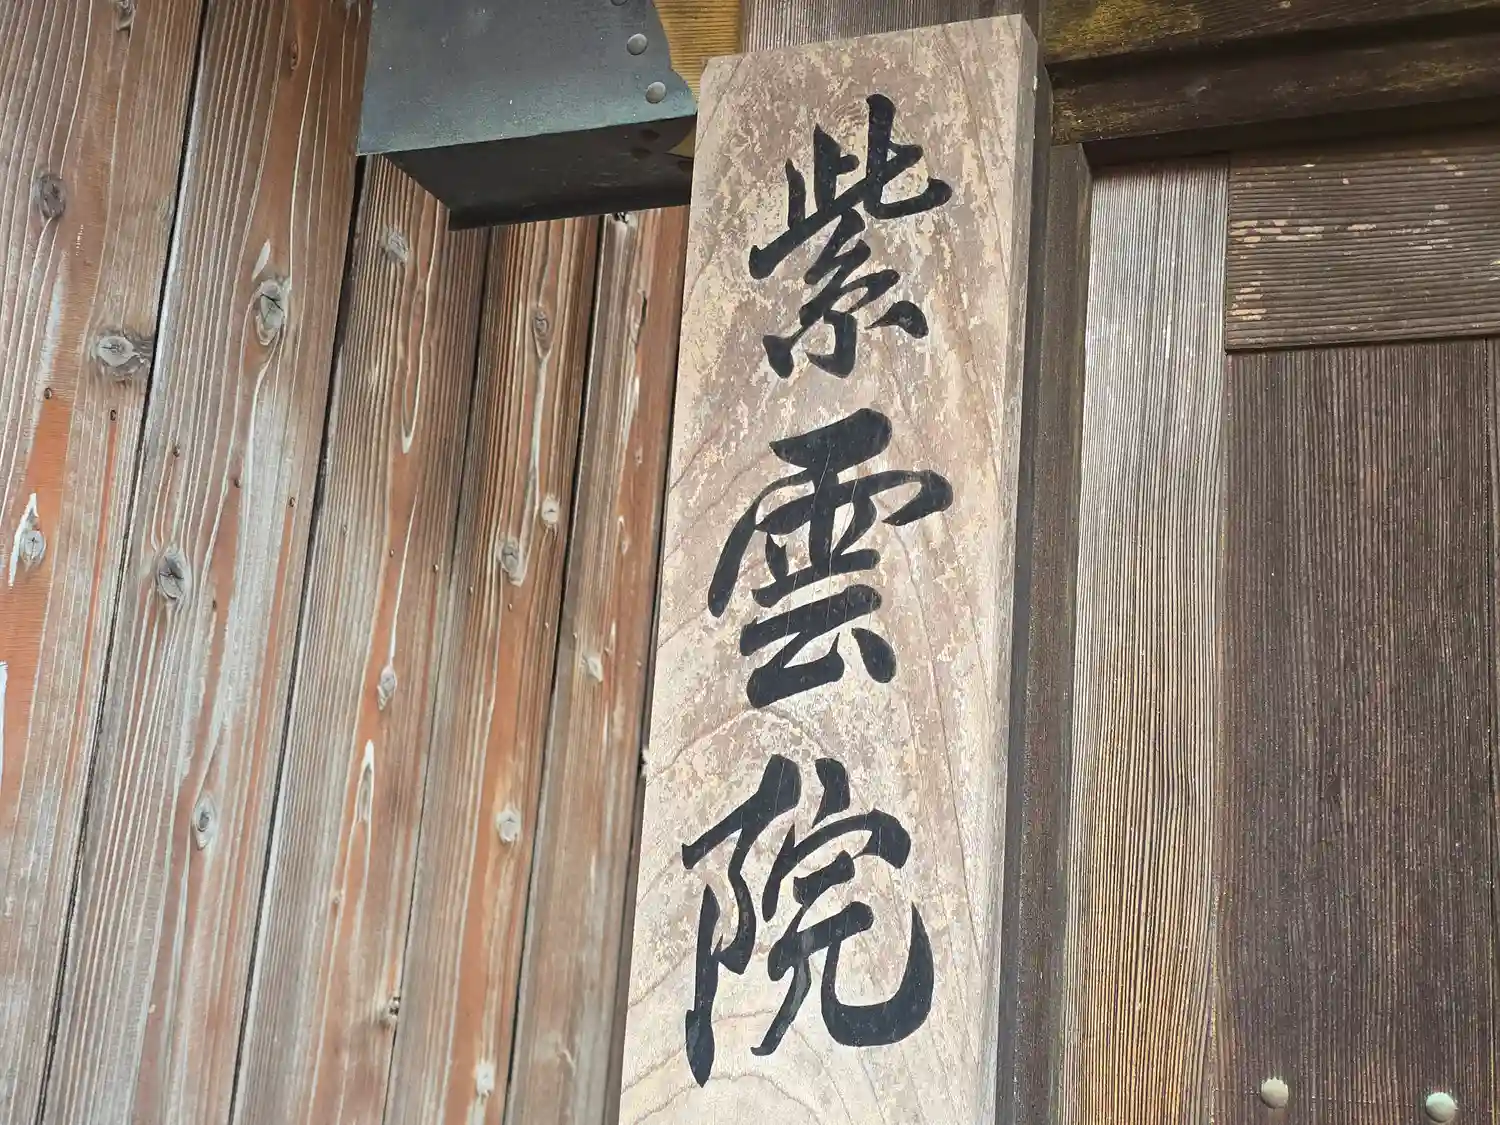 紫雲院